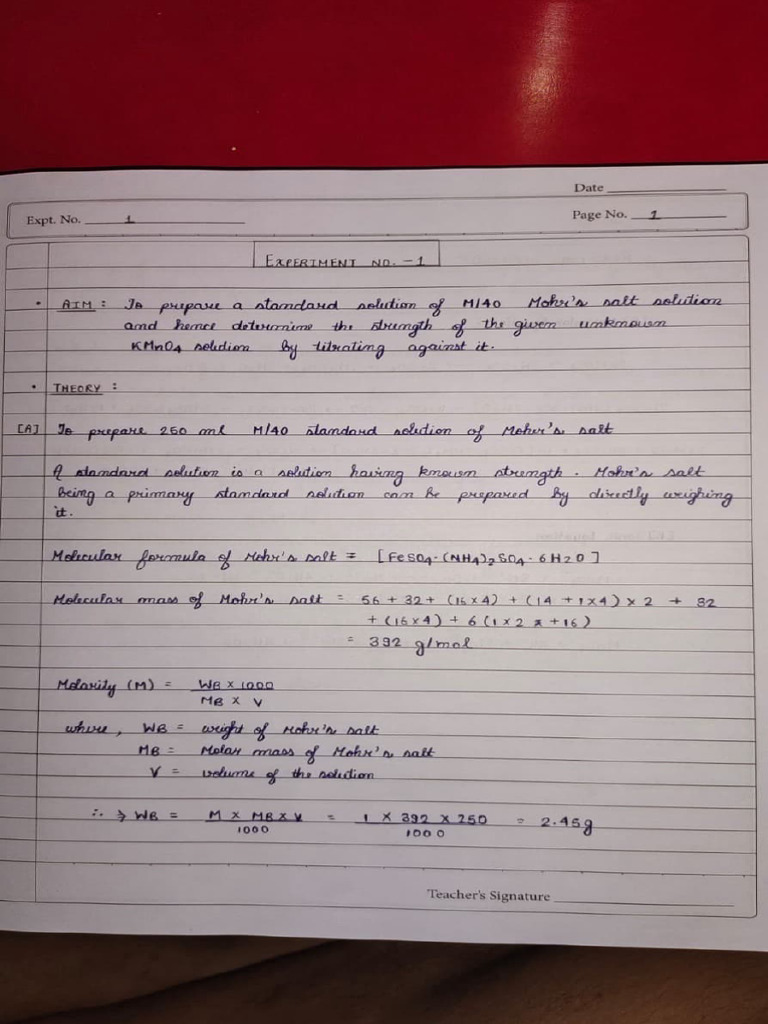 Date
Expt. No. 1
Page No. 1
EXPERIMENT NO. - 1
• AIM : To prepare a standard solution of M/40 Mohr's salt solution
and hence determine the strength of the given unknown
KMnO4 solution by titrating against it.
• THEORY :
[A] To prepare 250 ml M/40 standard solution of Mohr's salt
A standard solution is a solution having known strength. Mohr's salt
being a primary standard solution can be prepared by directly weighing
it.
Molecular formula of Mohr's salt = [FeSO4·(NH4)2SO4·6H2O]
Molecular mass of Mohr's salt = 56 + 32 + (16x4) + (14 + 1x4) x 2 + 32
+ (16x4) + 6 (1x2 + 16)
= 392 g/mol
Molarity (M) = WB x 1000
MB x V
where, WB = weight of Mohr's salt
MB = Molar mass of Mohr's salt
V = volume of the solution
∴ ⇒ WB = M x MB x V = 1 x 392 x 250 = 2.45g
1000 1000
Teacher's Signature